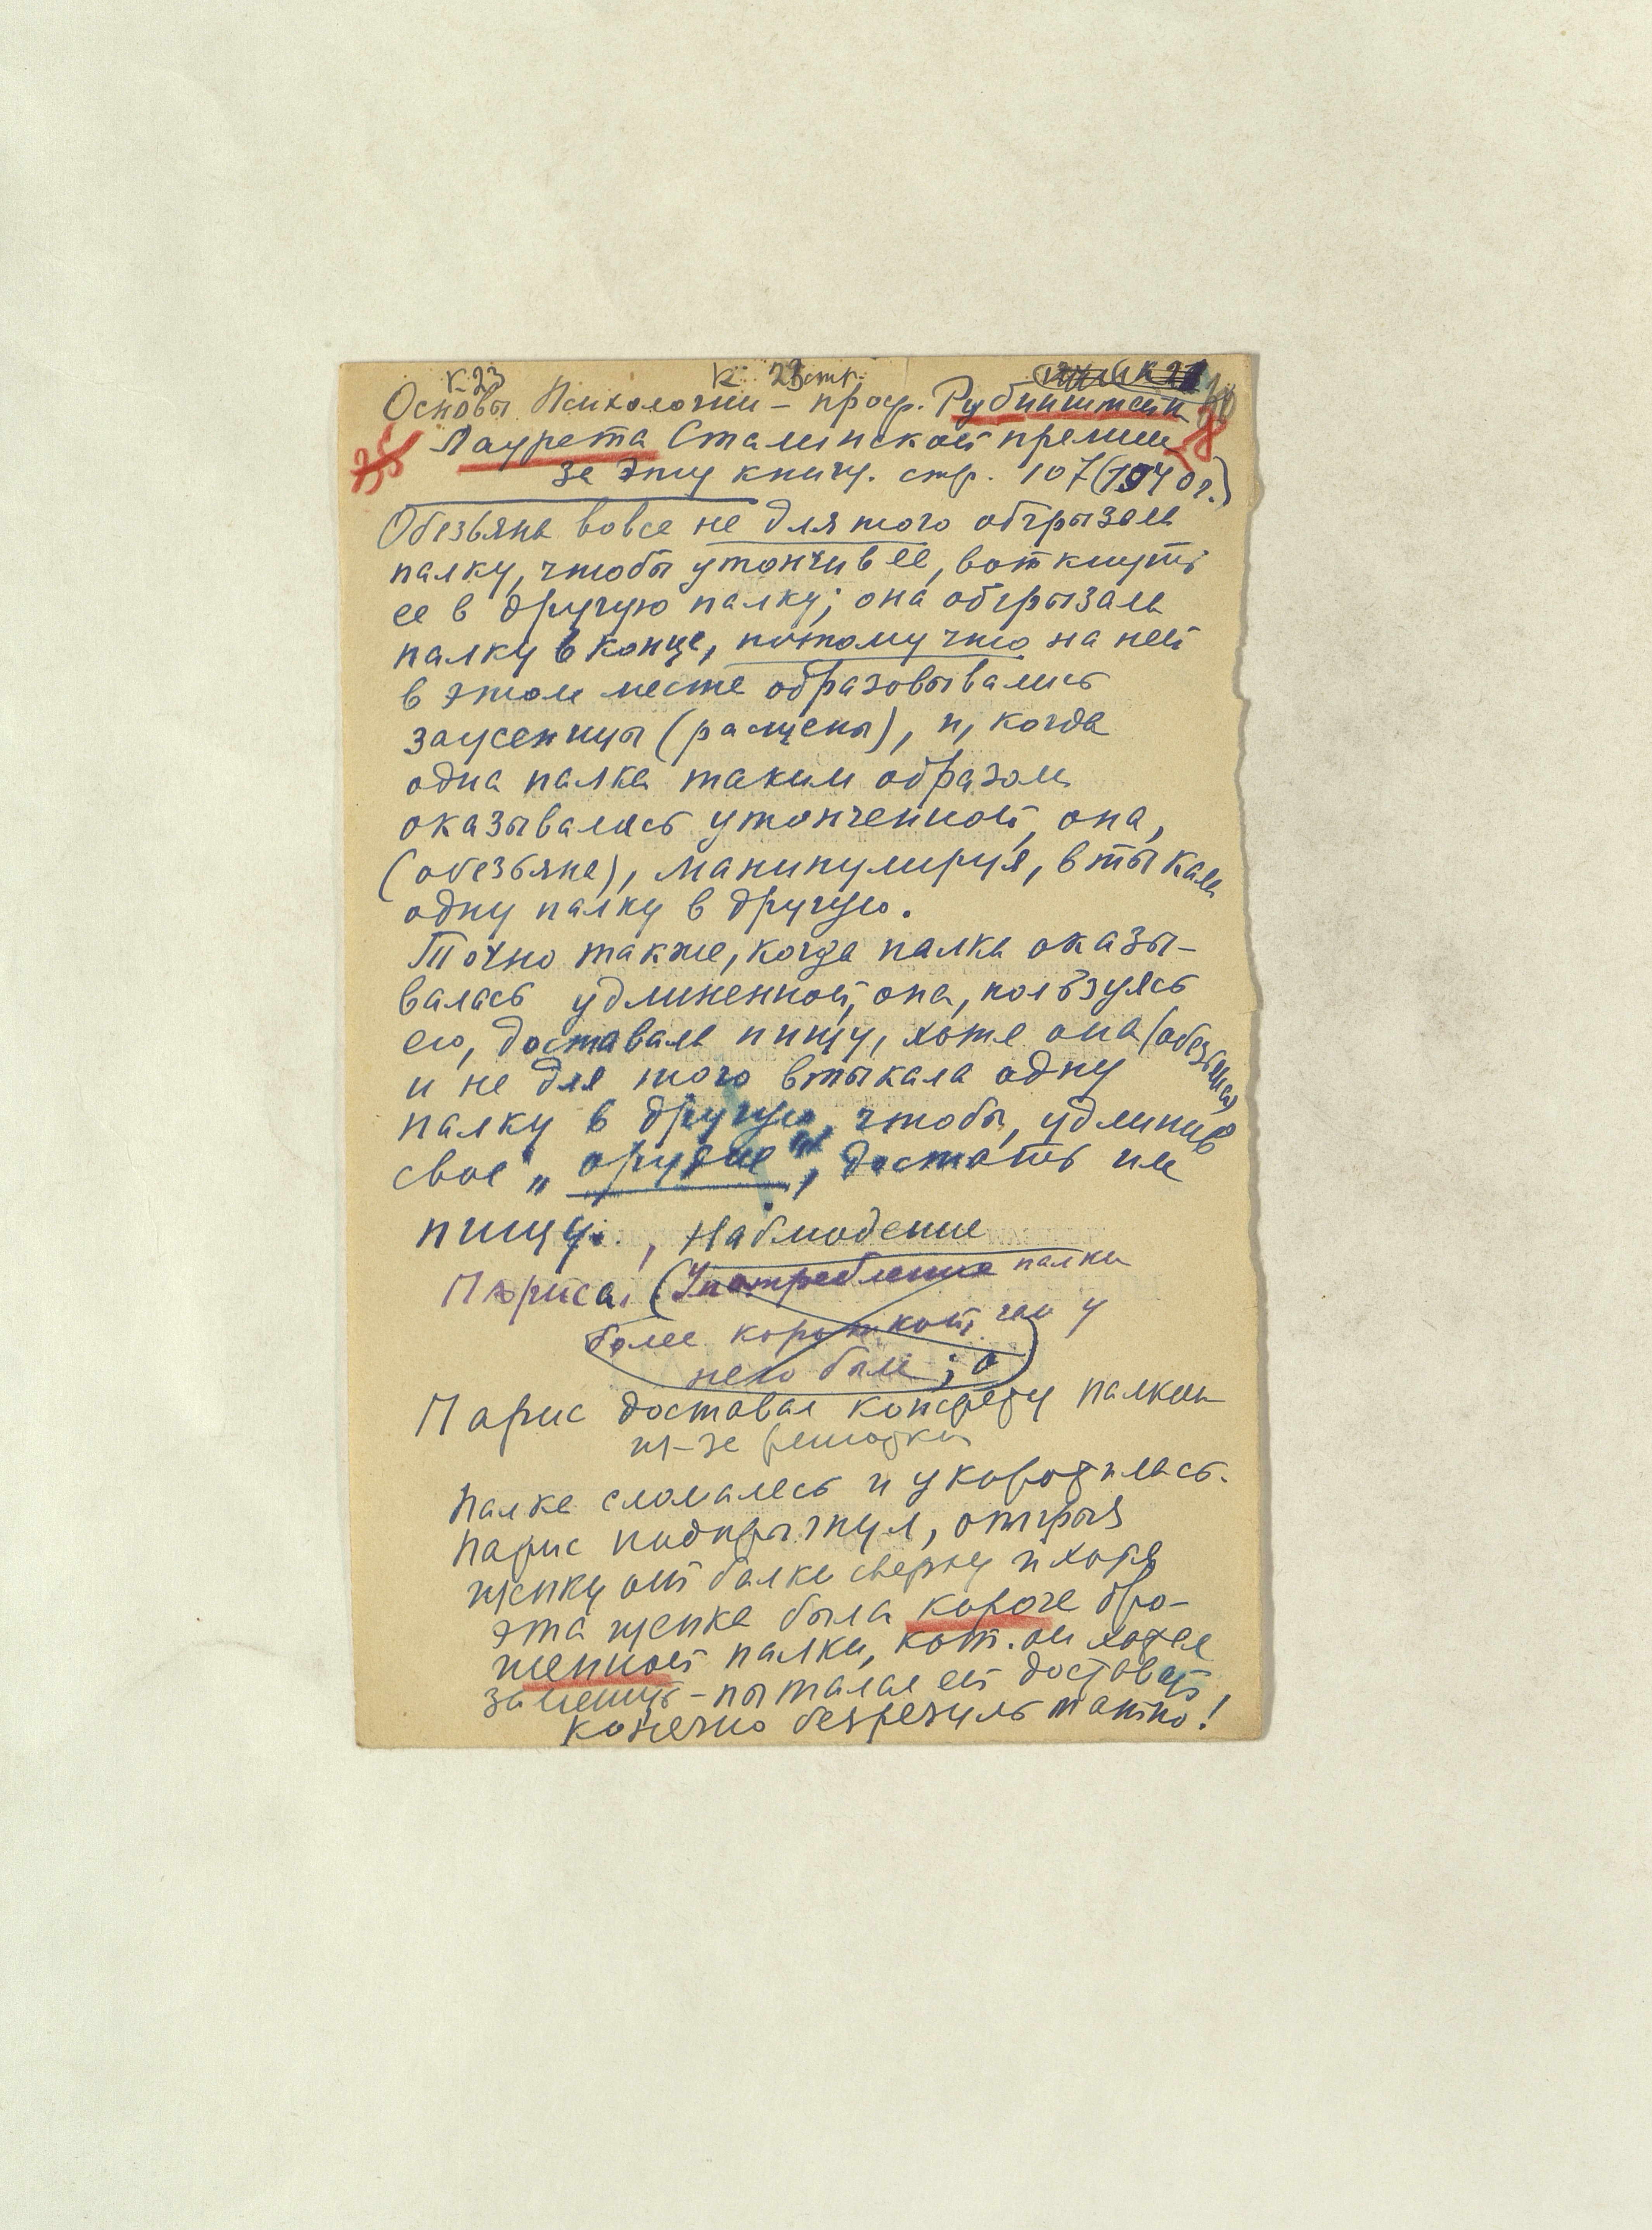 к 23 к 23 стр.
Основы Психологии – проф. Рубинштейн
35 Лаурета Сталинской премии
за эту книгу. стр. 107 (1940 г.)
Обезьяна вовсе не для того обгрызала
палку, чтобы утончив ее, воткнуть
ее в другую палку; она обгрызала
палку в конце, потому что на ней
в этом месте образовывались
заусеницы (расщепы), и, когда
одна палка таким образом
оказывалась утонченной, она,
(обезьяна), манипулируя, втыкала
одну палку в другую.
Точно также, когда палка оказы-
валась удлиненной, она, пользуясь
ею, доставала пищу, хотя она (обезьяна)
и не для того втыкала одну
палку в другую, чтобы, удлинив
свое „орудие“, достать им
пищу. , Наблюдение
Париса, (Употребление палки
более короткой, чем у
него была; а
Парис доставал конфету палкой
из-за решотки
палка сломалась и укоротилась.
Парис подпрыгнул, отгрыз
щепку от балки сверху и хотя
эта щепка была короче бро-
шенной палки, кот. он хотел
заменить – пытался ей доставать
конечно безрезультатно!